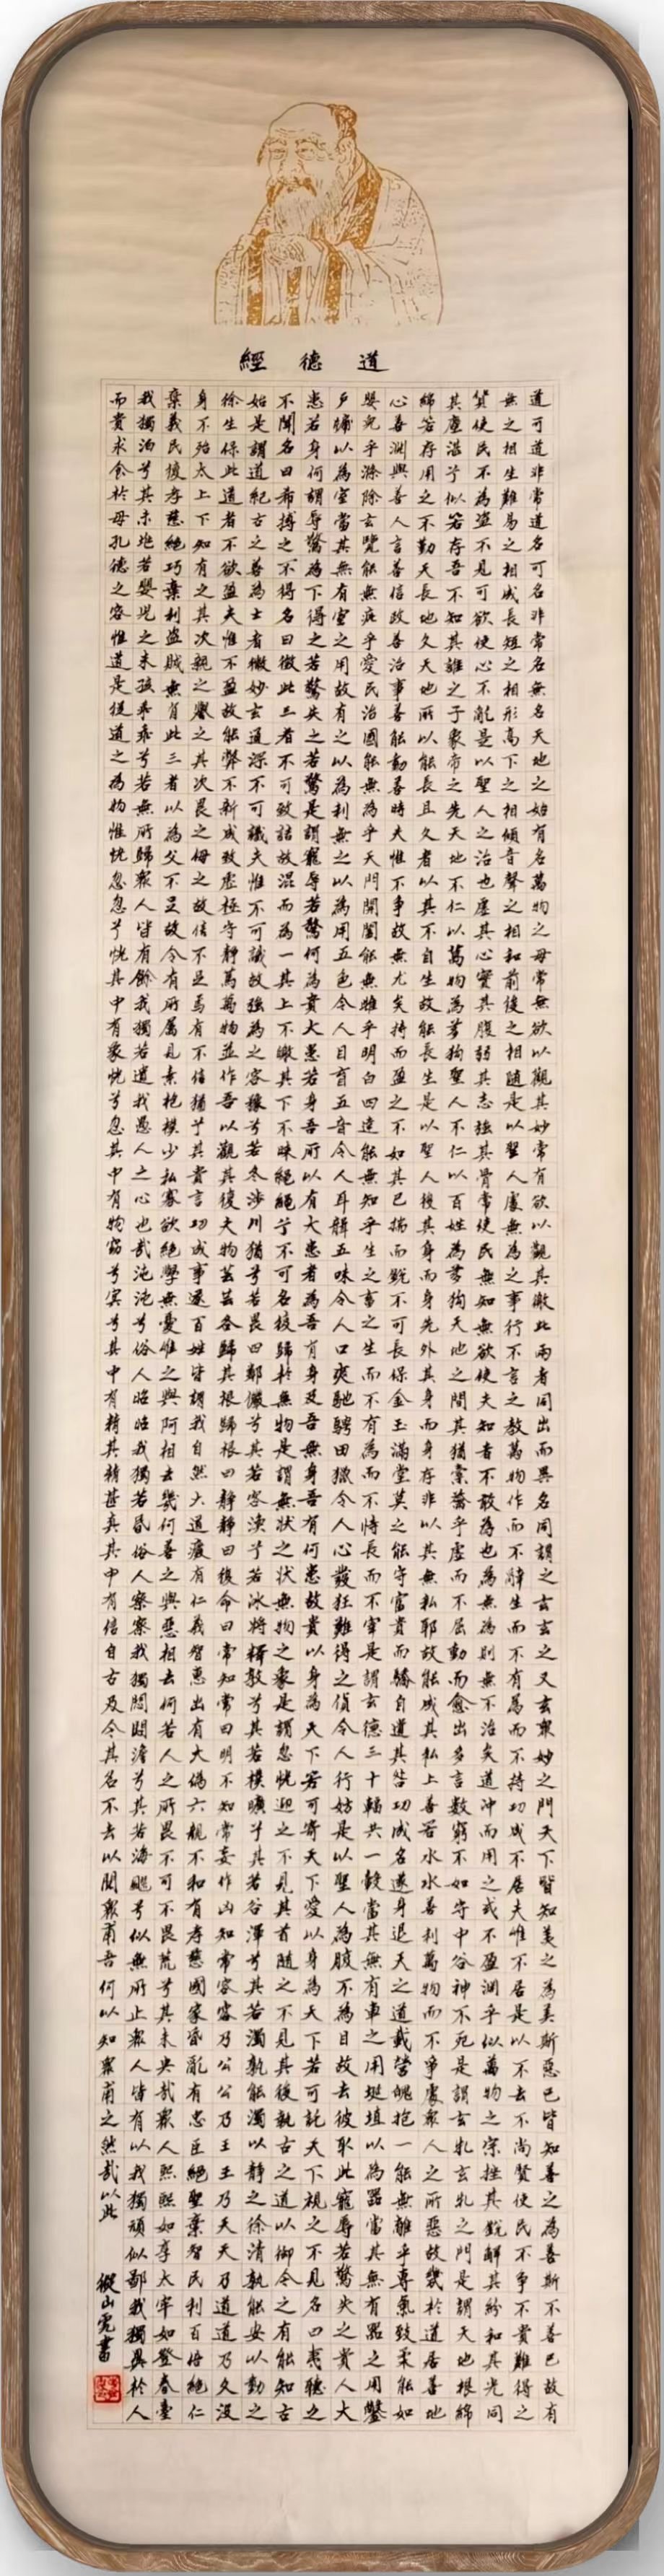 道德經
道可道非常道名可名非常名無名天地之始有名萬物之母常無欲以觀其妙常有欲以觀其徼此兩者同出而異名同謂之玄玄之又玄眾妙之門天下皆知美之為美斯惡已皆知善之為善斯不善已故有
無之相生難易之相成長短之相形高下之相傾音聲之相和前後之相隨是以聖人處無為之事行不言之教萬物作而不辭生而不有為而不持功成不居夫惟不居是以不去不尚賢使民不爭不貴難得之
貨使民不為盜不見可欲使心不亂是以聖人之治也虛其心實其腹弱其志強其骨常使民無知無欲使夫知者不敢為也為無為則無不治矣道沖而用之或不盈淵乎似萬物之宗挫其銳解其紛和其光同
其塵湛兮似若存吾不知其誰之子象帝之先天地不仁以萬物為芻狗聖人不仁以百姓為芻狗天地之間其猶橐籥乎虛而不屈動而愈出多言數窮不如守中谷神不死是謂玄牝玄牝之門是謂天地根綿
綿若存用之不勤天長地久天地所以能長且久者以其不自生故能長生是以聖人後其身而身先外其身而身存非以其無私耶故能成其私上善若水水善利萬物而不爭處眾人之所惡故幾於道居善地
心善淵與善人言善信政善治事善能動善時夫惟不爭故無尤矣持而盈之不如其已揣而銳不可長保金玉滿堂莫之能守富貴而驕自遺其咎功成名遂身退天之道載營魄抱一能無離乎專氣致柔能如
嬰兒乎滌除玄覽能無疵乎愛民治國能無為乎天門開闔能無雌乎明白四達能無知乎生之畜之生而不有為而不恃長而不宰是謂玄德三十輻共一轂當其無有車之用埏埴以為器當其無有器之用鑿
戶牖以為室當其無有室之用故有之以為利無之以為用五色令人目盲五音令人耳聾五味令人口爽馳騁田獵令人心發狂難得之貨令人行妨是以聖人為腹不為目故去彼取此寵辱若驚失之貴人大
患若身何謂辱驚為下得之若驚失之若驚是謂寵辱若驚何為貴大患若身吾所以有大患者為吾有身及吾無身吾有何患故貴以身為天下若可寄天下愛以身為天下若可託天下視之不見名曰夷聽之
不聞名曰希搏之不得名曰微此三者不可致詰故混而為一其上不皦其下不昧繩繩兮不可名復歸於無物是謂無狀之狀無物之象是謂忽恍迎之不見其首隨之不見其後執古之道以御今之有能知古
始是謂道紀古之善為士者微妙玄通深不可識夫惟不可識故強為之容豫兮若冬涉川猶兮若畏四鄰儼兮其若容渙兮若冰將釋敦兮其若樸曠兮其若谷渾兮其若濁孰能濁以靜之徐清孰能安以動之
徐生保此道者不欲盈夫惟不盈故能弊不新成致虛極守靜篤萬物並作吾以觀其復夫物芸芸各歸其根歸根曰靜靜曰復命曰常知常曰明不知常妄作凶知常容容乃公公乃王王乃天天乃道道乃久沒
身不殆太上下知有之其次親之譽之其次畏之侮之故信不足焉有不信猶兮其貴言功成事遂百姓皆謂我自然大道廢有仁義智惠出有大偽六親不和有孝慈國家昏亂有忠臣絕聖棄智民利百倍絕仁
棄義民復孝慈絕巧棄利盜賊無有此三者以為文不足故令有所屬見素抱樸少私寡欲絕學無憂惟之與阿相去幾何善之與惡相去何若人之所畏不可不畏荒兮其未央哉眾人熙熙如享太牢如登春臺
我獨泊兮其未兆若嬰兒之未孩乘乘兮若無所歸眾人皆有餘我獨若遺我愚人之心也哉沌沌兮俗人昭昭我獨若昏俗人察察我獨悶悶澹兮其若海飂兮似無所止眾人皆有以我獨頑似鄙我獨異於人
而貴求食於母孔德之容惟道是從道之為物惟恍忽忽兮恍其中有象恍兮忽其中有物窈兮冥兮其中有精其精甚真其中有信自古及今其名不去以閱眾甫吾何以知眾甫之然哉以此
緱山書